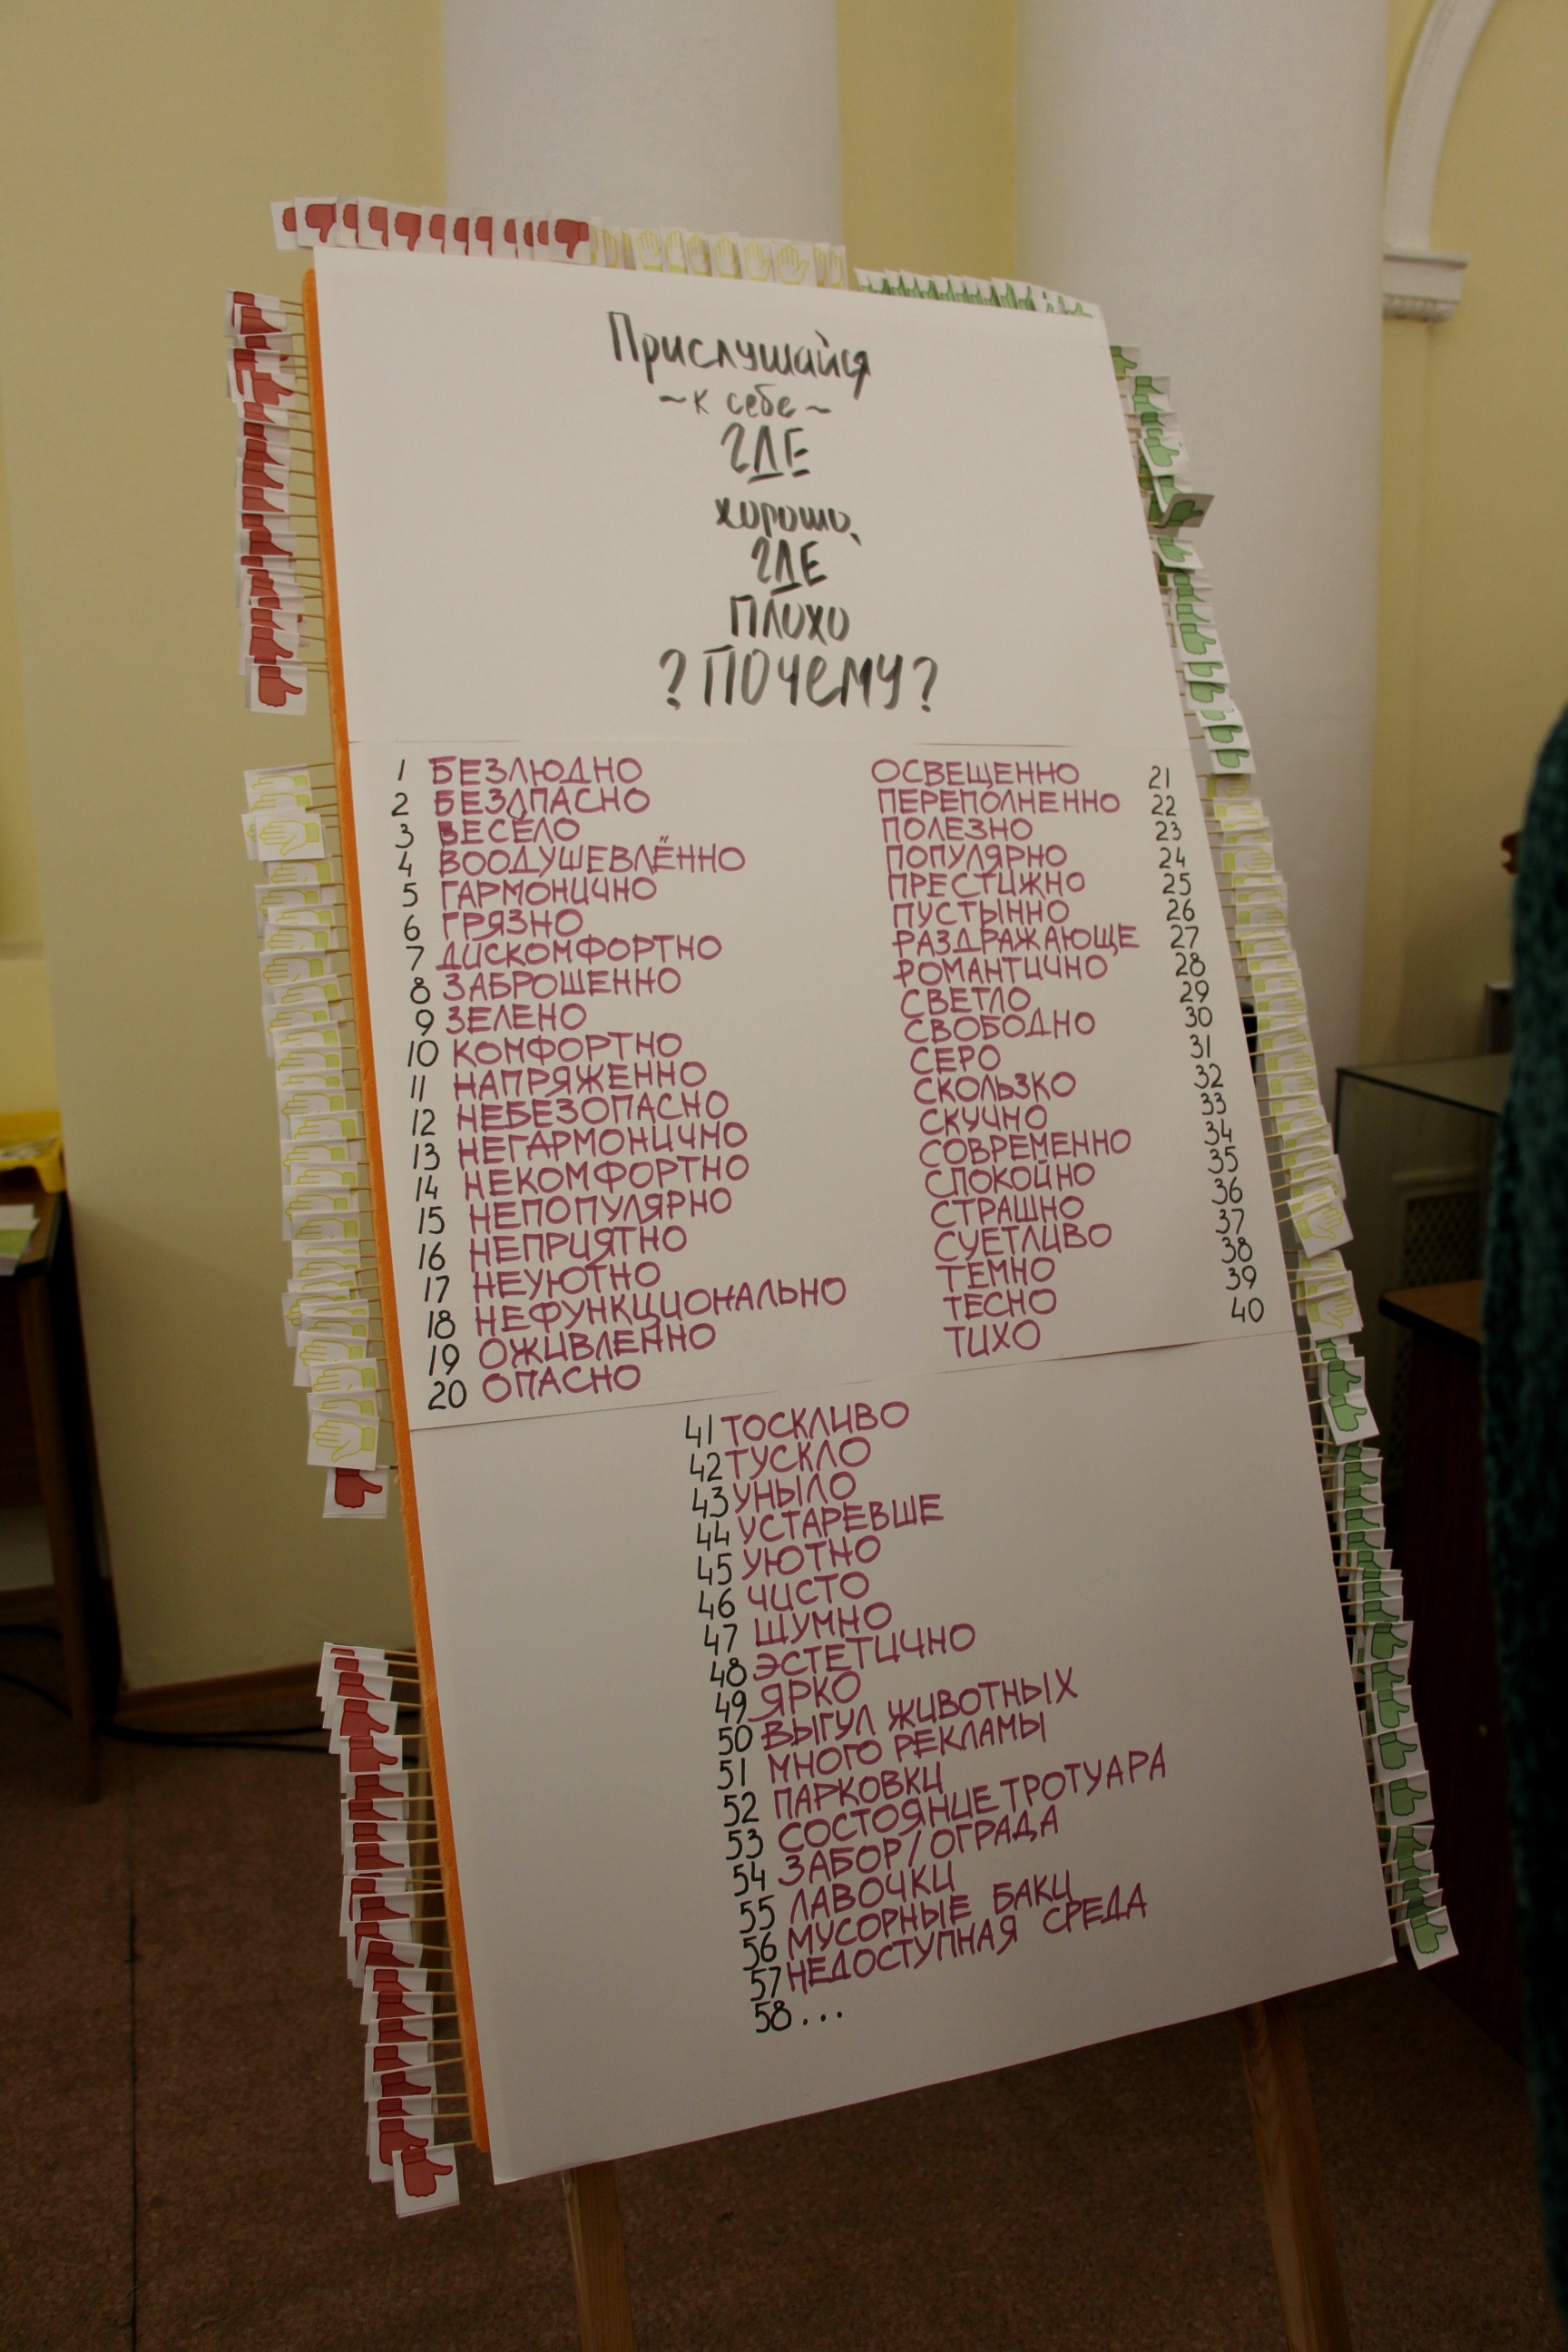 Прислушайся
~к себе~
ГДЕ
хорошо,
ГДЕ
ПЛОХО
?ПОЧЕМУ?
1 БЕЗЛЮДНО
2 БЕЗОПАСНО
3 ВЕСЁЛО
4 ВООДУШЕВЛЁННО
5 ГАРМОНИЧНО
6 ГРЯЗНО
7 ДИСКОМФОРТНО
8 ЗАБРОШЕННО
9 ЗЕЛЕНО
10 КОМФОРТНО
11 НАПРЯЖЕННО
12 НЕБЕЗОПАСНО
13 НЕГАРМОНИЧНО
14 НЕКОМФОРТНО
15 НЕПОПУЛЯРНО
16 НЕПРИЯТНО
17 НЕУЮТНО
18 НЕФУНКЦИОНАЛЬНО
19 ОЖИВЛЕННО
20 ОПАСНО
ОСВЕЩЕННО 21
ПЕРЕПОЛНЕННО 22
ПОЛЕЗНО 23
ПОПУЛЯРНО 24
ПРЕСТИЖНО 25
ПУСТЫННО 26
РАЗДРАЖАЮЩЕ 27
РОМАНТИЧНО 28
СВЕТЛО 29
СВОБОДНО 30
СЕРО 31
СКОЛЬЗКО 32
СКУЧНО 33
СОВРЕМЕННО 34
СПОКОЙНО 35
СТРАШНО 36
СУЕТЛИВО 37
ТЕМНО 38
ТЕСНО 39
ТИХО 40
41 ТОСКЛИВО
42 ТУСКЛО
43 УНЫЛО
44 УСТАРЕВШЕ
45 УЮТНО
46 ЧИСТО
47 ШУМНО
48 ЭСТЕТИЧНО
49 ЯРКО
50 ВЫГУЛ ЖИВОТНЫХ
51 МНОГО РЕКЛАМЫ
52 ПАРКОВКИ
53 СОСТОЯНИЕ ТРОТУАРА
54 ЗАБОР/ОГРАДА
55 ЛАВОЧКИ
56 МУСОРНЫЕ БАКИ
57 НЕДОСТУПНАЯ СРЕДА
58...